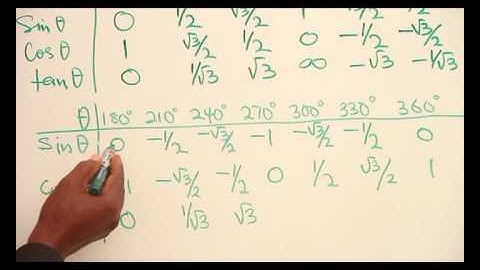 sinθ 0 1/2 √3/2
cosθ 1 √3/2 1/2 0 -1/2 -√3/2
tanθ 0 1/√3 √3 ∞ -√3 -1/√3
θ 180° 210° 240° 270° 300° 330° 360°
sinθ 0 -1/2 -√3/2 -1 -√3/2 -1/2 0
-1 -√3/2 -1/2 0 1/2 √3/2 1
0 1/√3 √3